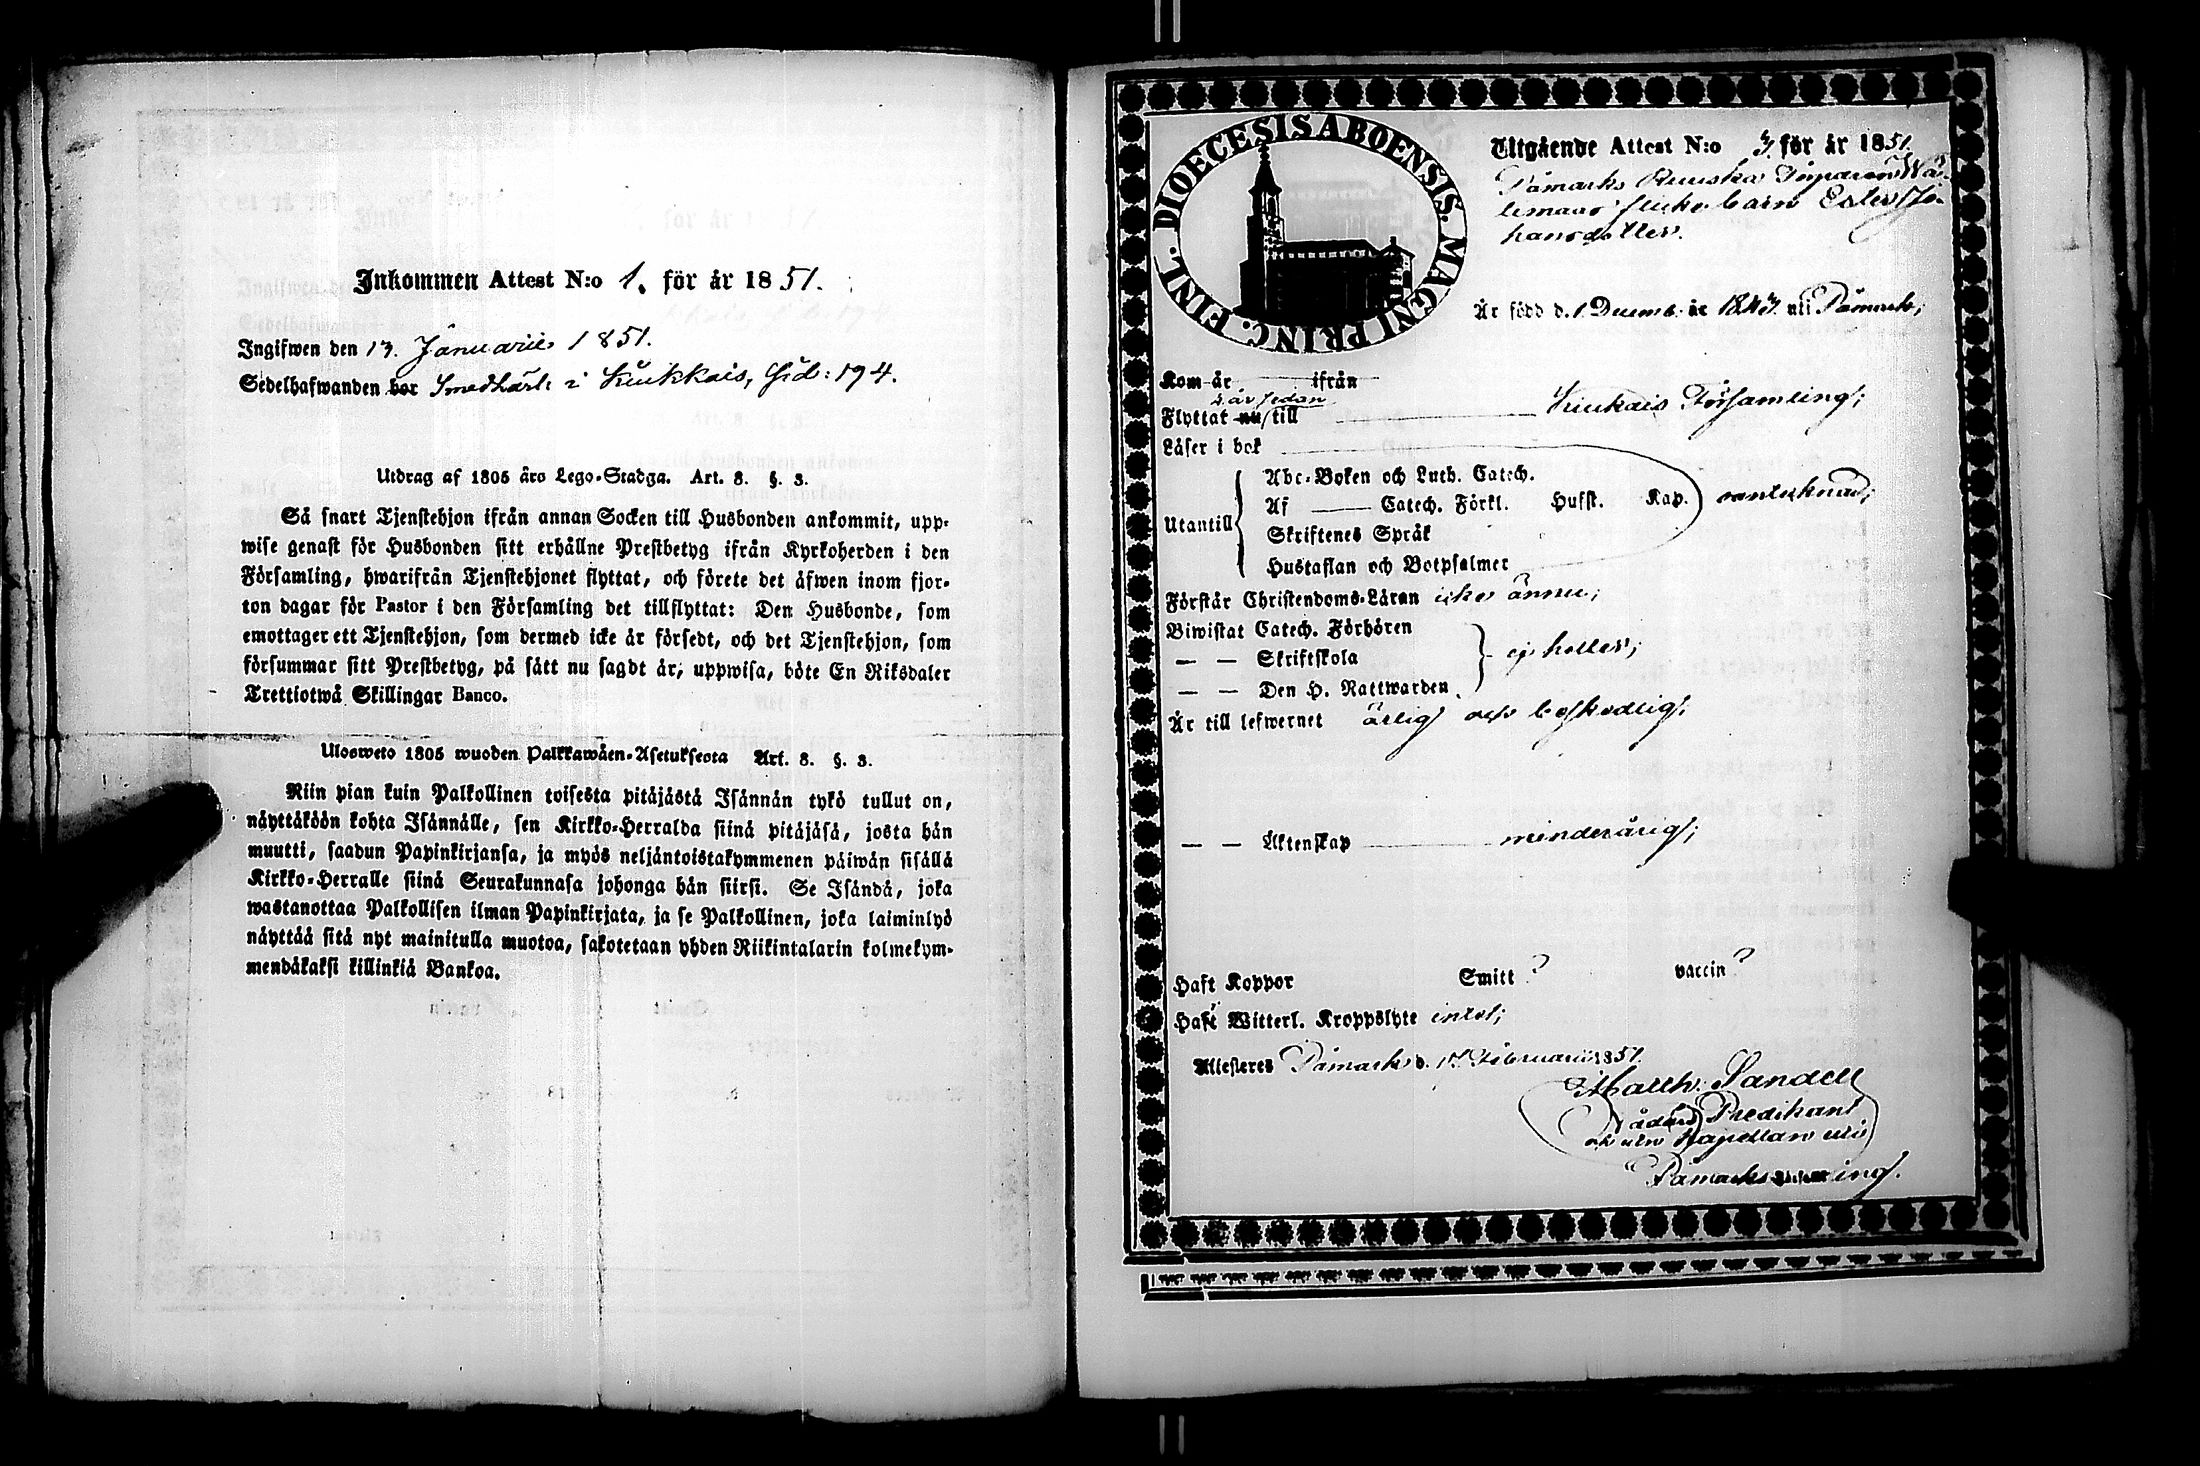 Inkommen Attest N:o 1. för år 1851.
Ingifwen den 13. Januarii 1851.
Sedelhafwanden bor Smedkärl i Kiukkais, Sid: 194.
Utdrag af 1805 års Lego-Stadga. Art. 8. §. 3.
Så snart Tjenstehjon ifrån annan Socken till Husbonden ankommit, upp-
wise genast för Husbonden sitt erhållne Prestbetyg ifrån Kyrkoherden i den
Församling, hwarifrån Tjenstehjonet flyttat, och förete det äfwen inom fjor-
ton dagar för Pastor i den Församling det tillflyttat: Den Husbonde, som
emottager ett Tjenstehjon, som dermed icke är försedt, och det Tjenstehjon, som
försummar sitt Prestbetyg, på sätt nu sagdt är, uppwisa, böte En Riksdaler
Trettiotwå Skillingar Banco.
Ulosweto 1805 wuoden Palkkawäen-Asetuksesta Art. 8. §. 3.
Niin pian kuin Palkollinen toisesta pitäjästä Isännän tykö tullut on,
näyttäköön kohta Isännälle, sen Kirkko-Herralda siinä pitäjäsä, josta hän
muutti, saadun Papinkirjansa, ja myös neljäntoistakymmenen päiwän sisällä
Kirkko-Herralle siinä Seurakunnasa johonga hän siirsi. Se Isändä, joka
wastanottaa Palkollisen ilman Papinkirjata, ja se Palkollinen, joka laiminlyö
näyttää sitä nyt mainitulla muotoa, sakotetaan yhden Riikintalarin kolmekym-
mendäkaksi killinkiä Bankoa.
DIOECESIS ABOENSIS. MAGNI PRINC. FINL.
Utgående Attest N:o 3. för år 1851.
Påmarks Ruuska
flicke barn Ester Jo-
hansdotter.
Är född d. 1 Decemb. år 1843. uti Påmark;
Kom år ifrån
2 år sedan
Flyttat nu/till Kiukais Församling;
Läser i bok
Abc-Boken och Luth. Catech.
Utantill Af Catech. Förkl. Hufst. Kap.
Skriftenes Språk
Hustaflan och Botpsalmer
Förstår Christendoms-Läran icke ännu;
Biwistat Catech. Förhören
— — Skriftskola ej heller;
— — Den H. Nattwarden
Är till lefwernet ärlig och beskedlig;
— — Äktenskap minderårig;
Haft Koppor Smitt ? vaccin ?
Haft Witterl. Kroppslyte intet;
Attesteras Påmark d. 17 Februarii 1851.
Matth. Sandell
Nådårs Predikant
Kapellan uti
Påmarks Församling.